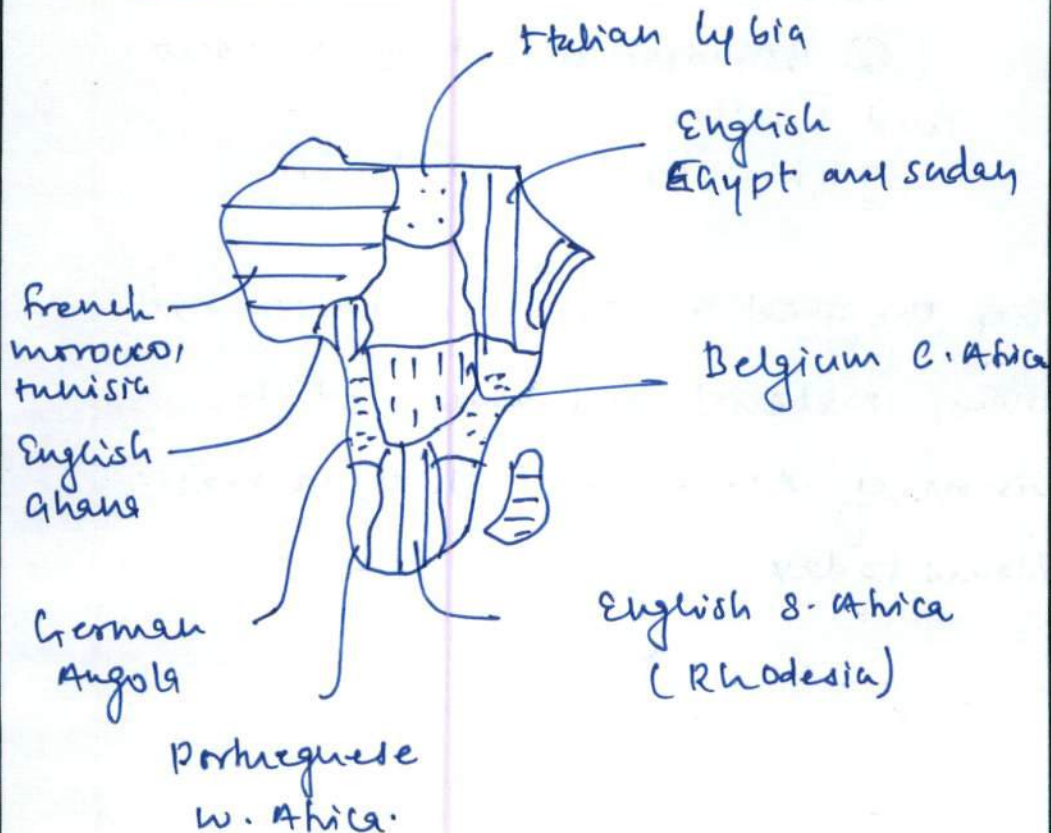 Italian Lybia
English
Egypt and sudan
French
morocco,
tunisia
Belgium C. Africa
English
Ghana
German
Angola
English S. Africa
(Rhodesia)
Portueguese
W. Africa.